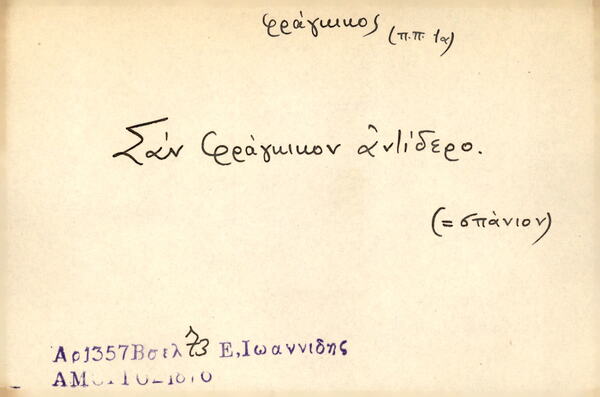 φράγκικος (π.π. 1α)
Σὰν φράγκικον ἀντίδερο.
(= σπάνιον)
Αρ1357Βσελ 73 Ε,Ιωαννιδης